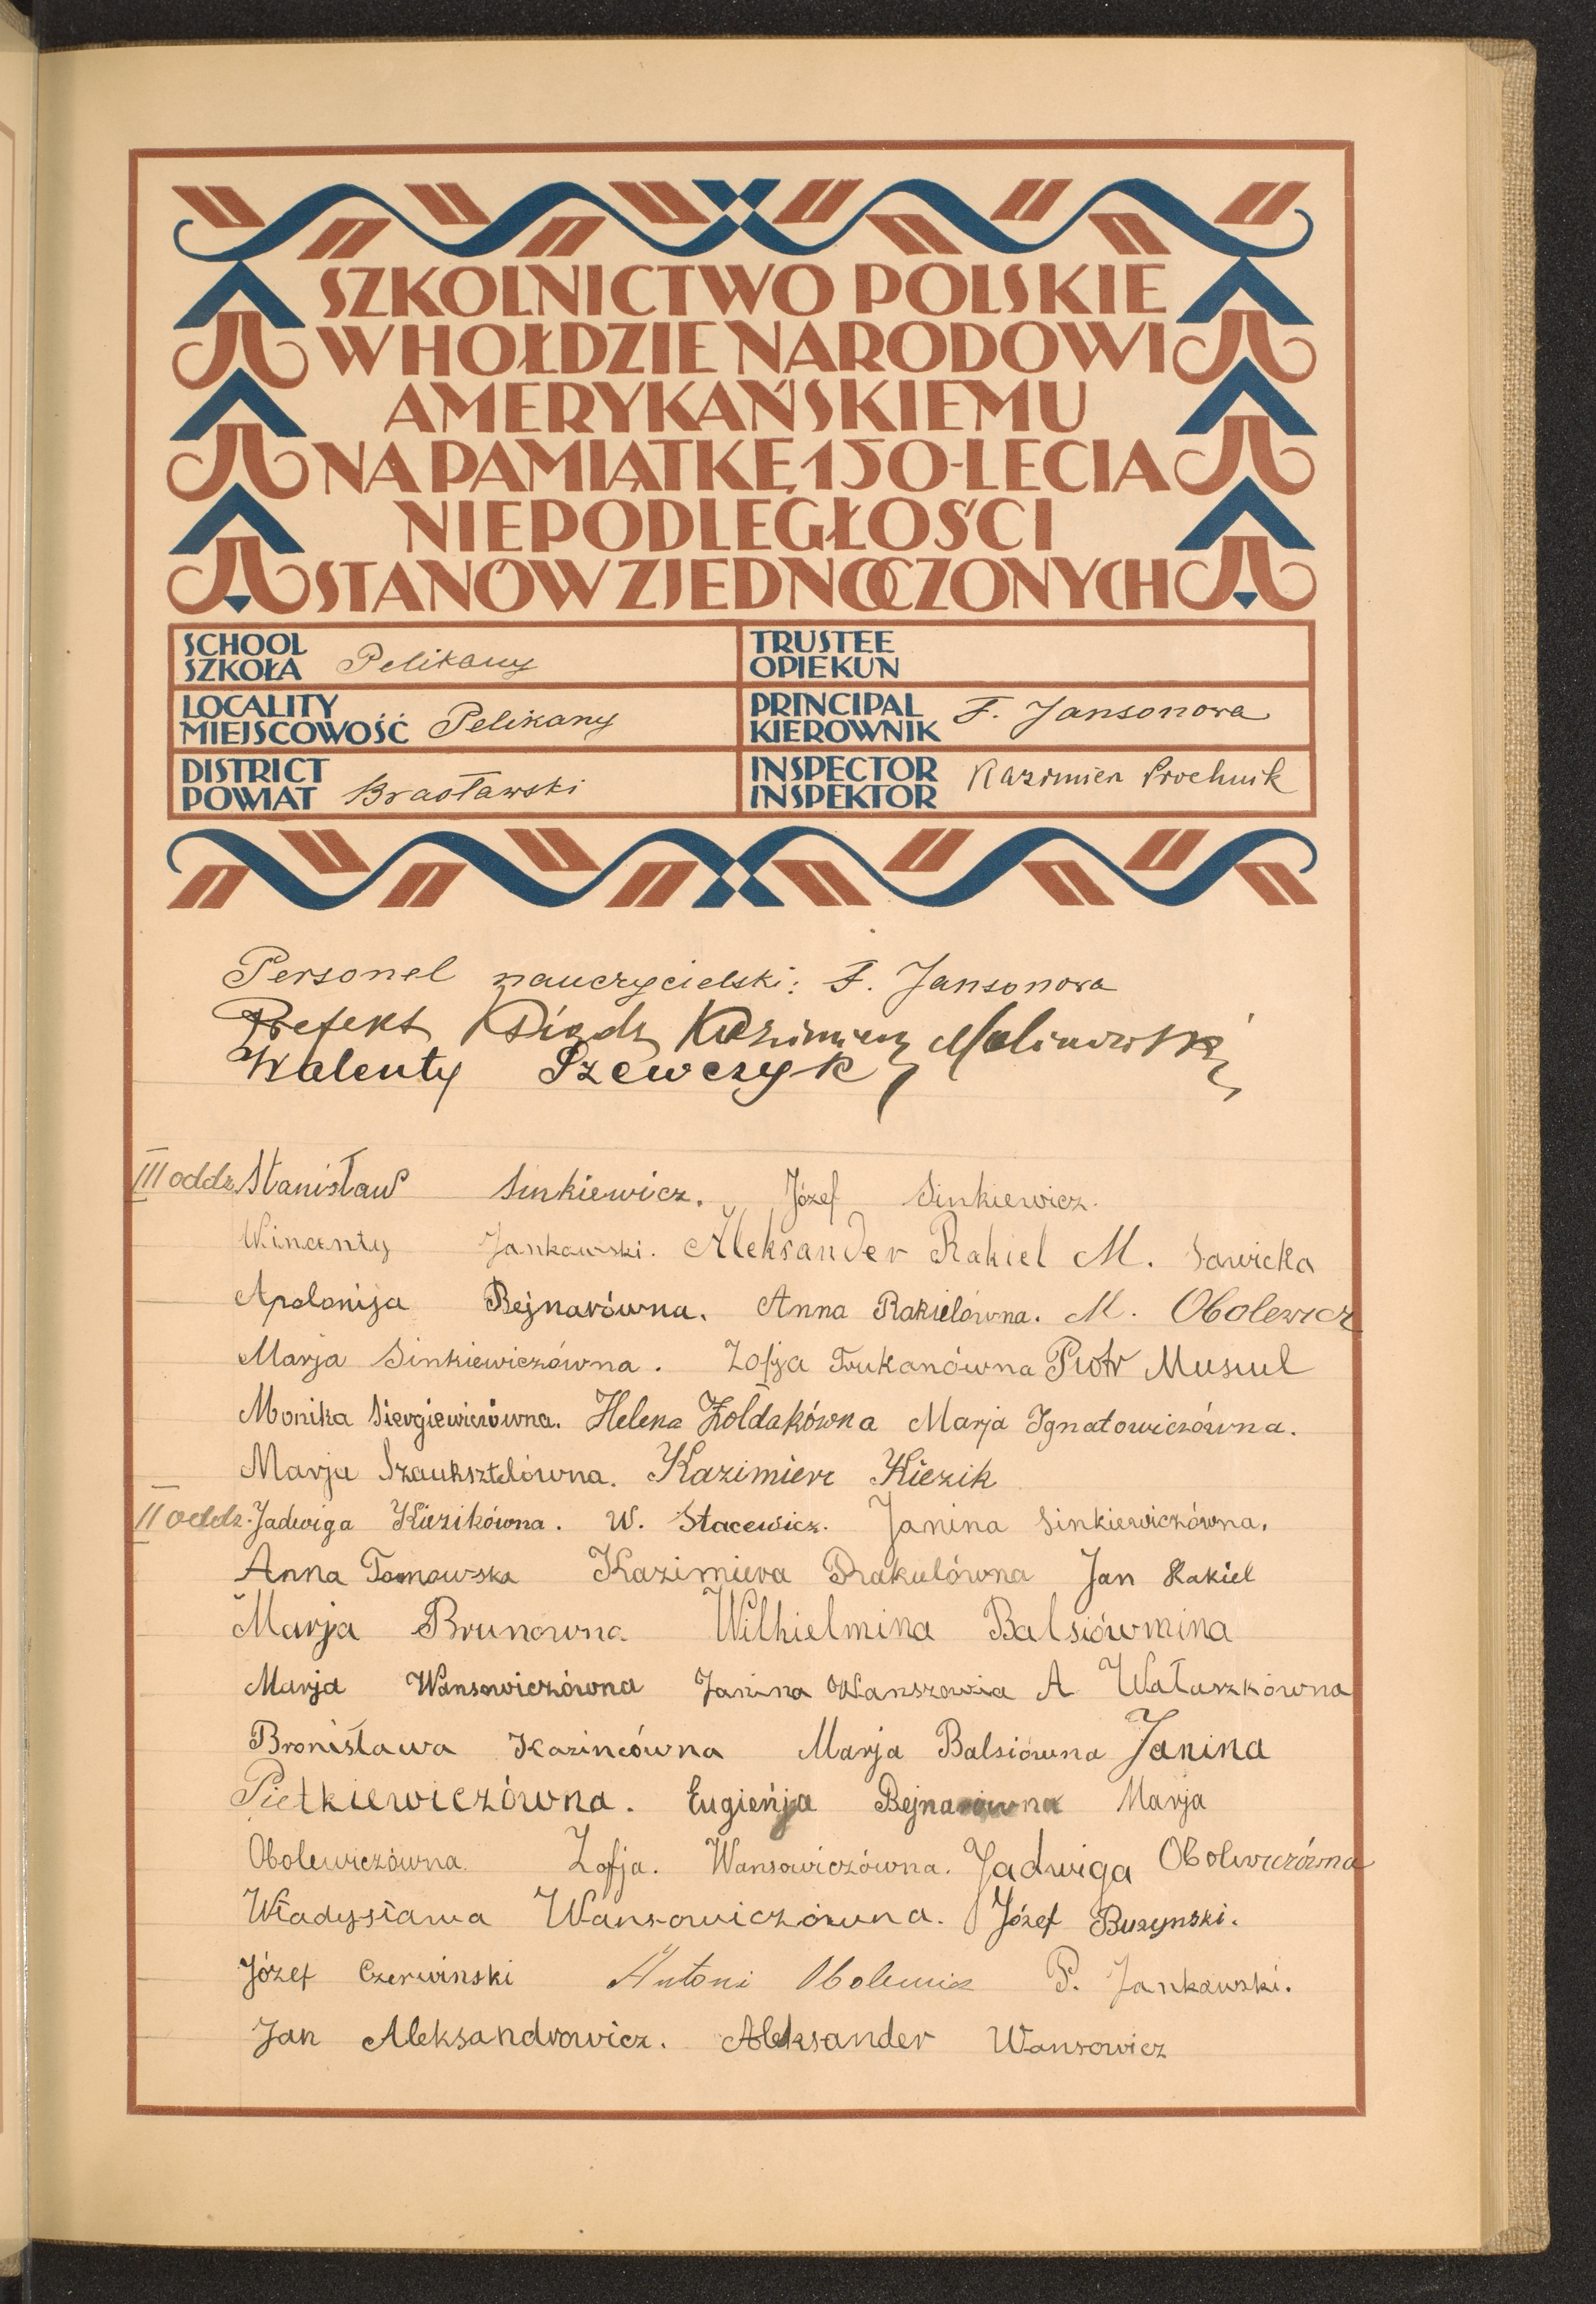 SZKOLNICTWO POLSKIE
W HOŁDZIE NARODOWI
AMERYKAŃSKIEMU
NA PAMIĄTKĘ 150-LECIA
NIEPODLEGŁOŚCI
STANÓW ZJEDNOCZONYCH
SCHOOL
SZKOŁA Pelikany
TRUSTEE
OPIEKUN
LOCALITY
MIEJSCOWOŚĆ Pelikany
PRINCIPAL
KIEROWNIK F. Jansonowa
DISTRICT
POWIAT Brasławski
INSPECTOR
INSPEKTOR Kazimierz Prochnik
Personel nauczycielski: F. Jansonowa
Prefekt Ksiądz Kazimierz Malinowski
Walenty Szewczyk
III oddz. Stanisław Sinkiewicz. Józef Sinkiewicz.
Wincenty Jankawski. Aleksander Rakiel M. Sawicka
Apolonija Rejnarówna. Anna Rakielówna. M. Obolewicz
Marja Sinkiewiczówna. Zofja Trukanówna Piotr Musiul
Monika Siergiewiczówna. Helena Żołdakówna Marja Ignatowiczówna.
Marja Szauksztelówna. Kazimierz Kiezik
II oddz. Jadwiga Kiezikówna. W. Stacewicz. Janina Sinkiewiczówna.
Anna Tomowska Kazimiera Rakulówna Jan Rakiel
Marja Brunowna Wilhielmina Balsiówmina
Marja Wansowiczówna Janina Wanszowia A Wałuszkówna
Bronisława Kazincówna Marja Balsiówna Janina
Pietkiewiczówna. Eugieńja Bejnarówna Marja
Obolewiczówna. Zofja. Wansowiczówna. Jadwiga Obolewiczówna
Władysława Wansowiczówna. Józef Buzynski.
Józef Czerwinski Antoni Obolewicz P. Jankawski.
Jan Aleksandrowicz. Aleksander Wansowicz